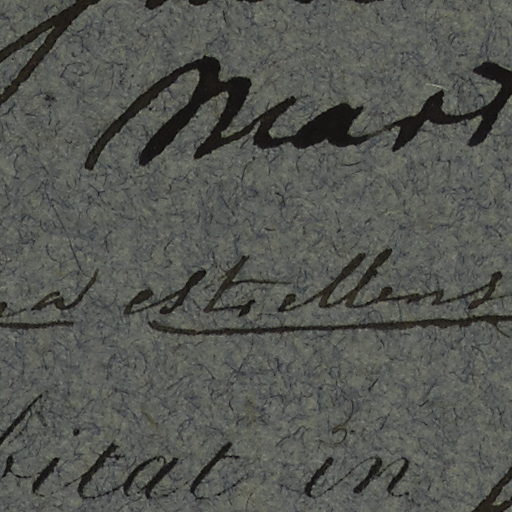 Mart
na estrellens
bitat in